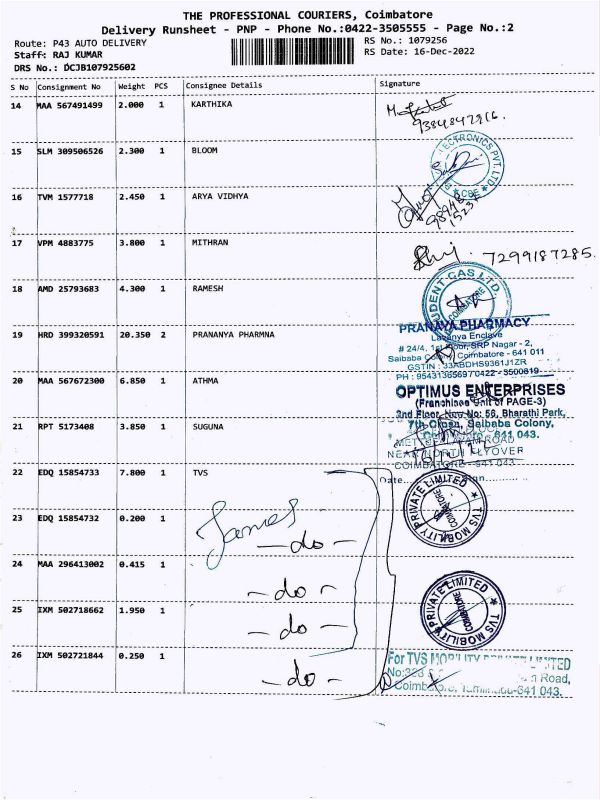 THE PROFESSIONAL COURIERS, Coimbatore
Delivery Runsheet - PNP - Phone No.:0422-3505555 - Page No.:2
Route: P43 AUTO DELIVERY
RS No.: 1079256
Staff: RAJ KUMAR
RS Date: 16-Dec-2022
DRS No.: DCJB107925602
S No Consignment No Weight PCS Consignee Details Signature
14 MAA 567491499 2.000 1 KARTHIKA
9384847916.
15 SLM 309506526 2.300 1 BLOOM
ECTRONICS PVT. LTD
CBE
16 TVM 1577718 2.450 1 ARYA VIDHYA
17 VPM 4883775 3.800 1 MITHRAN
7299187285.
18 AMD 25793683 4.300 1 RAMESH
UDENT GAS LTD.
COIMBATORE
19 HRD 399320591 20.350 2 PRANANYA PHARMNA
PRANAYA PHARMACY
Lavanya Enclave
# 24/4, 1st Floor, SRP Nagar - 2,
Saibaba Coimbatore - 641 011
GSTIN : 33ABDHS9361J1ZR
PH : 9543136569 / 0422 - 3500819
20 MAA 567672300 6.850 1 ATHMA
OPTIMUS ENTERPRISES
(Franchises Unit of PAGE-3)
2nd Floor, New No: 56, Bharathi Park,
21 RPT 5173408 3.850 1 SUGUNA
7th Cross, Saibaba Colony,
641 043.
ROAD
NEAR NORTH FLYOVER
COIMBATORE - 641 043
22 EDQ 15854733 7.800 1 TVS
Date
TVS MOBILITY PRIVATE LIMITED
COIMBATORE
23 EDQ 15854732 0.200 1
James
- do -
24 MAA 296413002 0.415 1
- do -
TVS MOBILITY PRIVATE LIMITED
COIMBATORE
25 IXM 502718662 1.950 1
- do -
26 IXM 502721844 0.250 1
- do -
For TVS MOBILITY PRIVATE LIMITED
Road,
641 043.